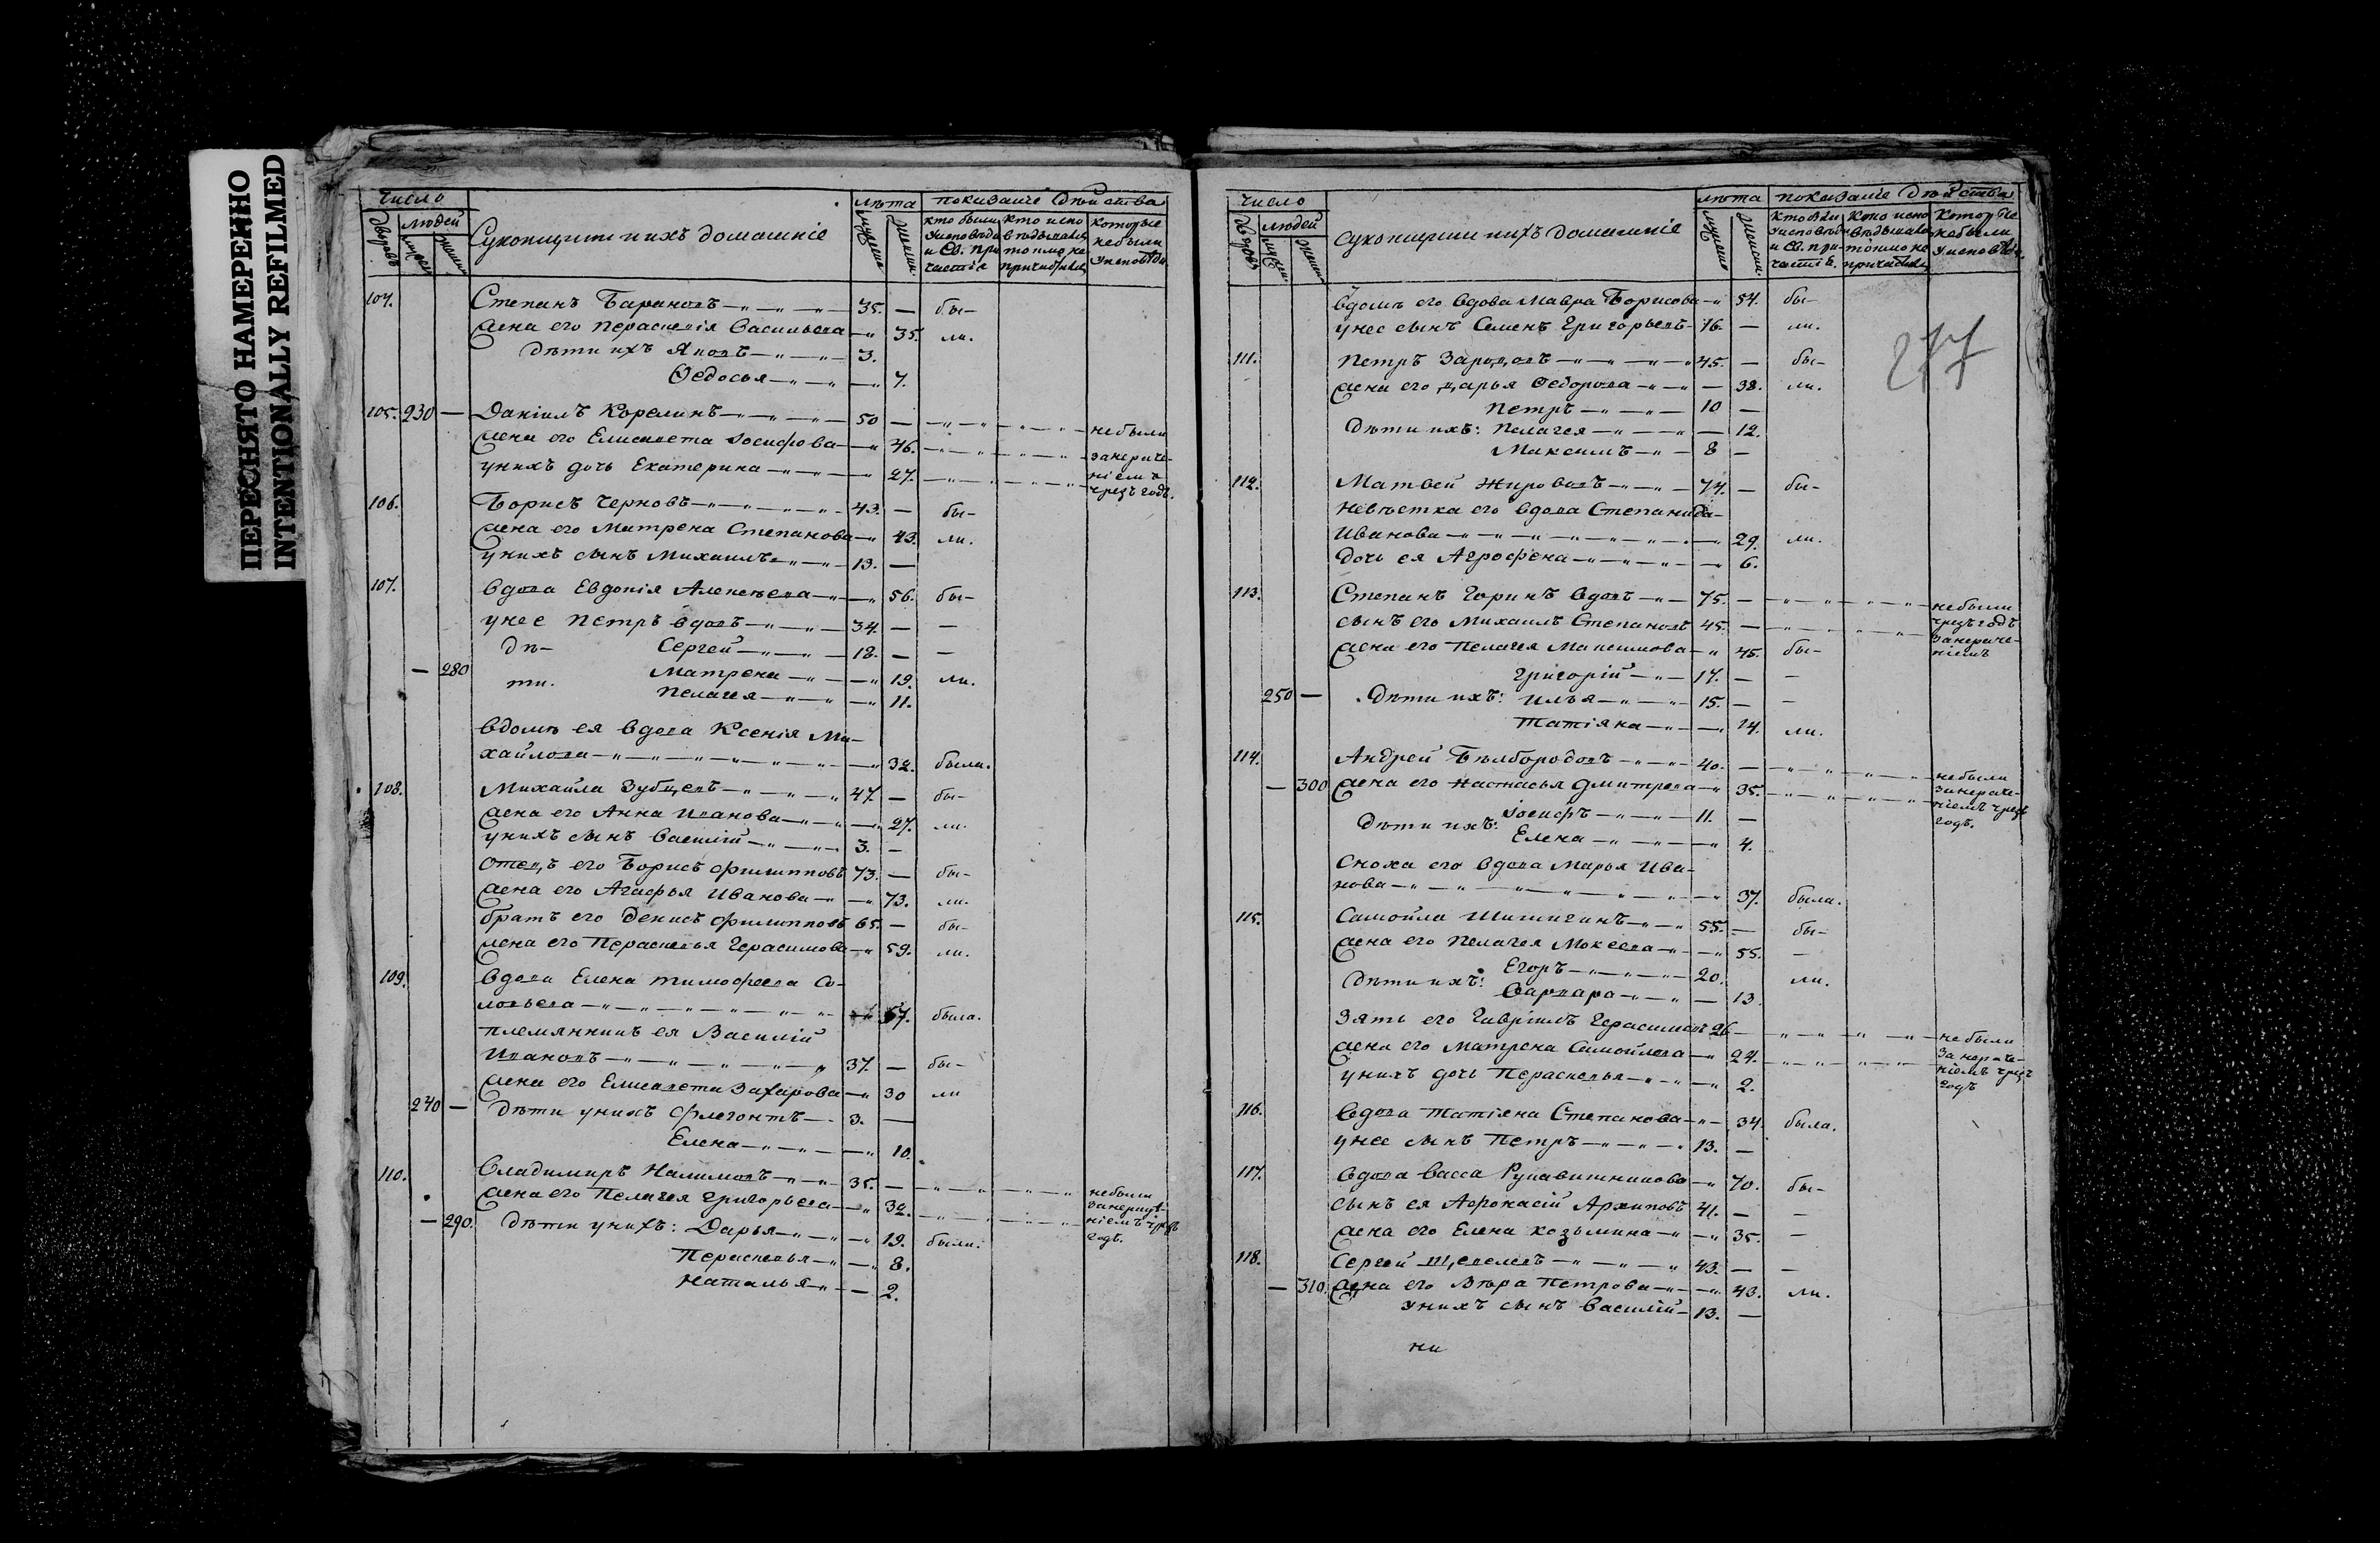 ПЕРЕСНЯТО НАМЕРЕННО
INTENTIONALLY REFILMED
Число лѣта показаніе дѣйства
дворовъ людей Сукощики ихъ домашніе мужеска женска кто были кто испо которые
у исповѣди вѣдывался небыли
и Св. при токмо не у исповѣди
частія причащался
104. Степанъ Барановъ 35. — бы-
жена его Параскевія Васильева 35. ли.
дѣти ихъ Яковъ 3.
Ѳедосья 7.
105. 230 — Даніилъ Корелинъ 50 — небыли
жена его Елисавета Іосифова 46. занерачe-
нихъ дочь Екатерина 27. ніемъ
чрезъ годъ.
106. Борисъ Черновъ 43. — бы-
жена его Матрена Степанова 43. ли.
унихъ сынъ Михаилъ 13. —
107. вдова Евдокія Алексѣева 56. бы-
унее Петръ вдовъ 34. — —
дѣ- Сергей 18. — —
— 280 Матрена 19. ли.
ти. Пелагея 11.
вдомѣ ея вдова Ксенія Ми-
хайлова 32. была.
108. Михайла Зубцевъ 47. — бы-
жена его Анна Иванова 27. ли.
унихъ сынъ Василій 3. —
отецъ его Борисъ Филипповъ 73. — бы-
жена его Агафья Иванова 73. ли.
братъ его Денисъ Филипповъ 65. — бы-
жена его Парасковья Герасимова 59. ли.
109. вдова Елена Тимофеева Со-
ловьева 57. была.
племянникъ ея Василій
Ивановъ 37. — бы-
жена его Елисавета Захарова 30 ли
240 — дѣти унихъ Флегонтъ 3. —
Елена 10.
110. Владимиръ Налимовъ 35. — небыли
жена его Пелагея Григорьева 32. занераче-
— 290. дѣти унихъ: Дарья 19. была. ніемъ чрезъ
годъ.
Парасковья 8.
Наталья 2.
Число лѣта показаніе дѣйства
дворовъ людей Сукощики ихъ домашніе мужеска женска кто были кто испо которые
у исповѣди вѣдывался небыли
и Св. при- токмо не у исповѣди.
частія. причащался
277
вдомѣ его вдова Мавра Борисова 54. бы-
унее сынъ Семенъ Григорьевъ 16. — ли.
111. Петръ Зародовъ 45. — бы-
жена его Дарья Ѳедорова — 38. ли.
Петръ 10 —
дѣти ихъ: Пелагея — 12.
Максимъ 8 —
112. Матвей Жирововъ 74. — бы-
невѣстка его вдова Степанида
Иванова 29. ли.
дочь ея Агрофена 6.
113. Степанъ Горинъ вдовъ 75. — небыли
сынъ его Михаилъ Степановъ 45. — чрезъ годъ
занераче-
жена его Пелагея Максимова 45. бы- ніемъ
Григорій 17. — —
250 — дѣти ихъ: Илья 15. — —
Татіяна 14. ли.
114. Андрей Бѣлбородовъ 40. — небыли
— 300 жена его Настасья Дмитрева 35. занераче-
ніемъ чрезъ
Іосифъ 11. — годъ.
дѣти ихъ: Елена 4.
Сноха его вдова Марья Ива-
нова 37. была.
115. Самойла Шишигинъ 55. — бы-
жена его Пелагея Мокеева 55. —
Егоръ 20.
дѣти ихъ: Варвара — 13. ли.
Зять его Гавріилъ Герасимовъ 26 — небыли
жена его Матрена Самойлова 24. занераче-
ніемъ чрезъ
унихъ дочь Парасковья 2. годъ
116. вдова Татіяна Степанова 34 была.
унее сынъ Петръ 13. —
117. вдова Васса Рукавишникова 70. бы-
сынъ ея Афонасій Архиповъ 41. — —
жена его Елена Козьмина 35. —
118. Сергей Щевелевъ 43. — —
— 310. жена его Вѣра Петрова 43. ли.
унихъ сынъ Василій 13. —
ни